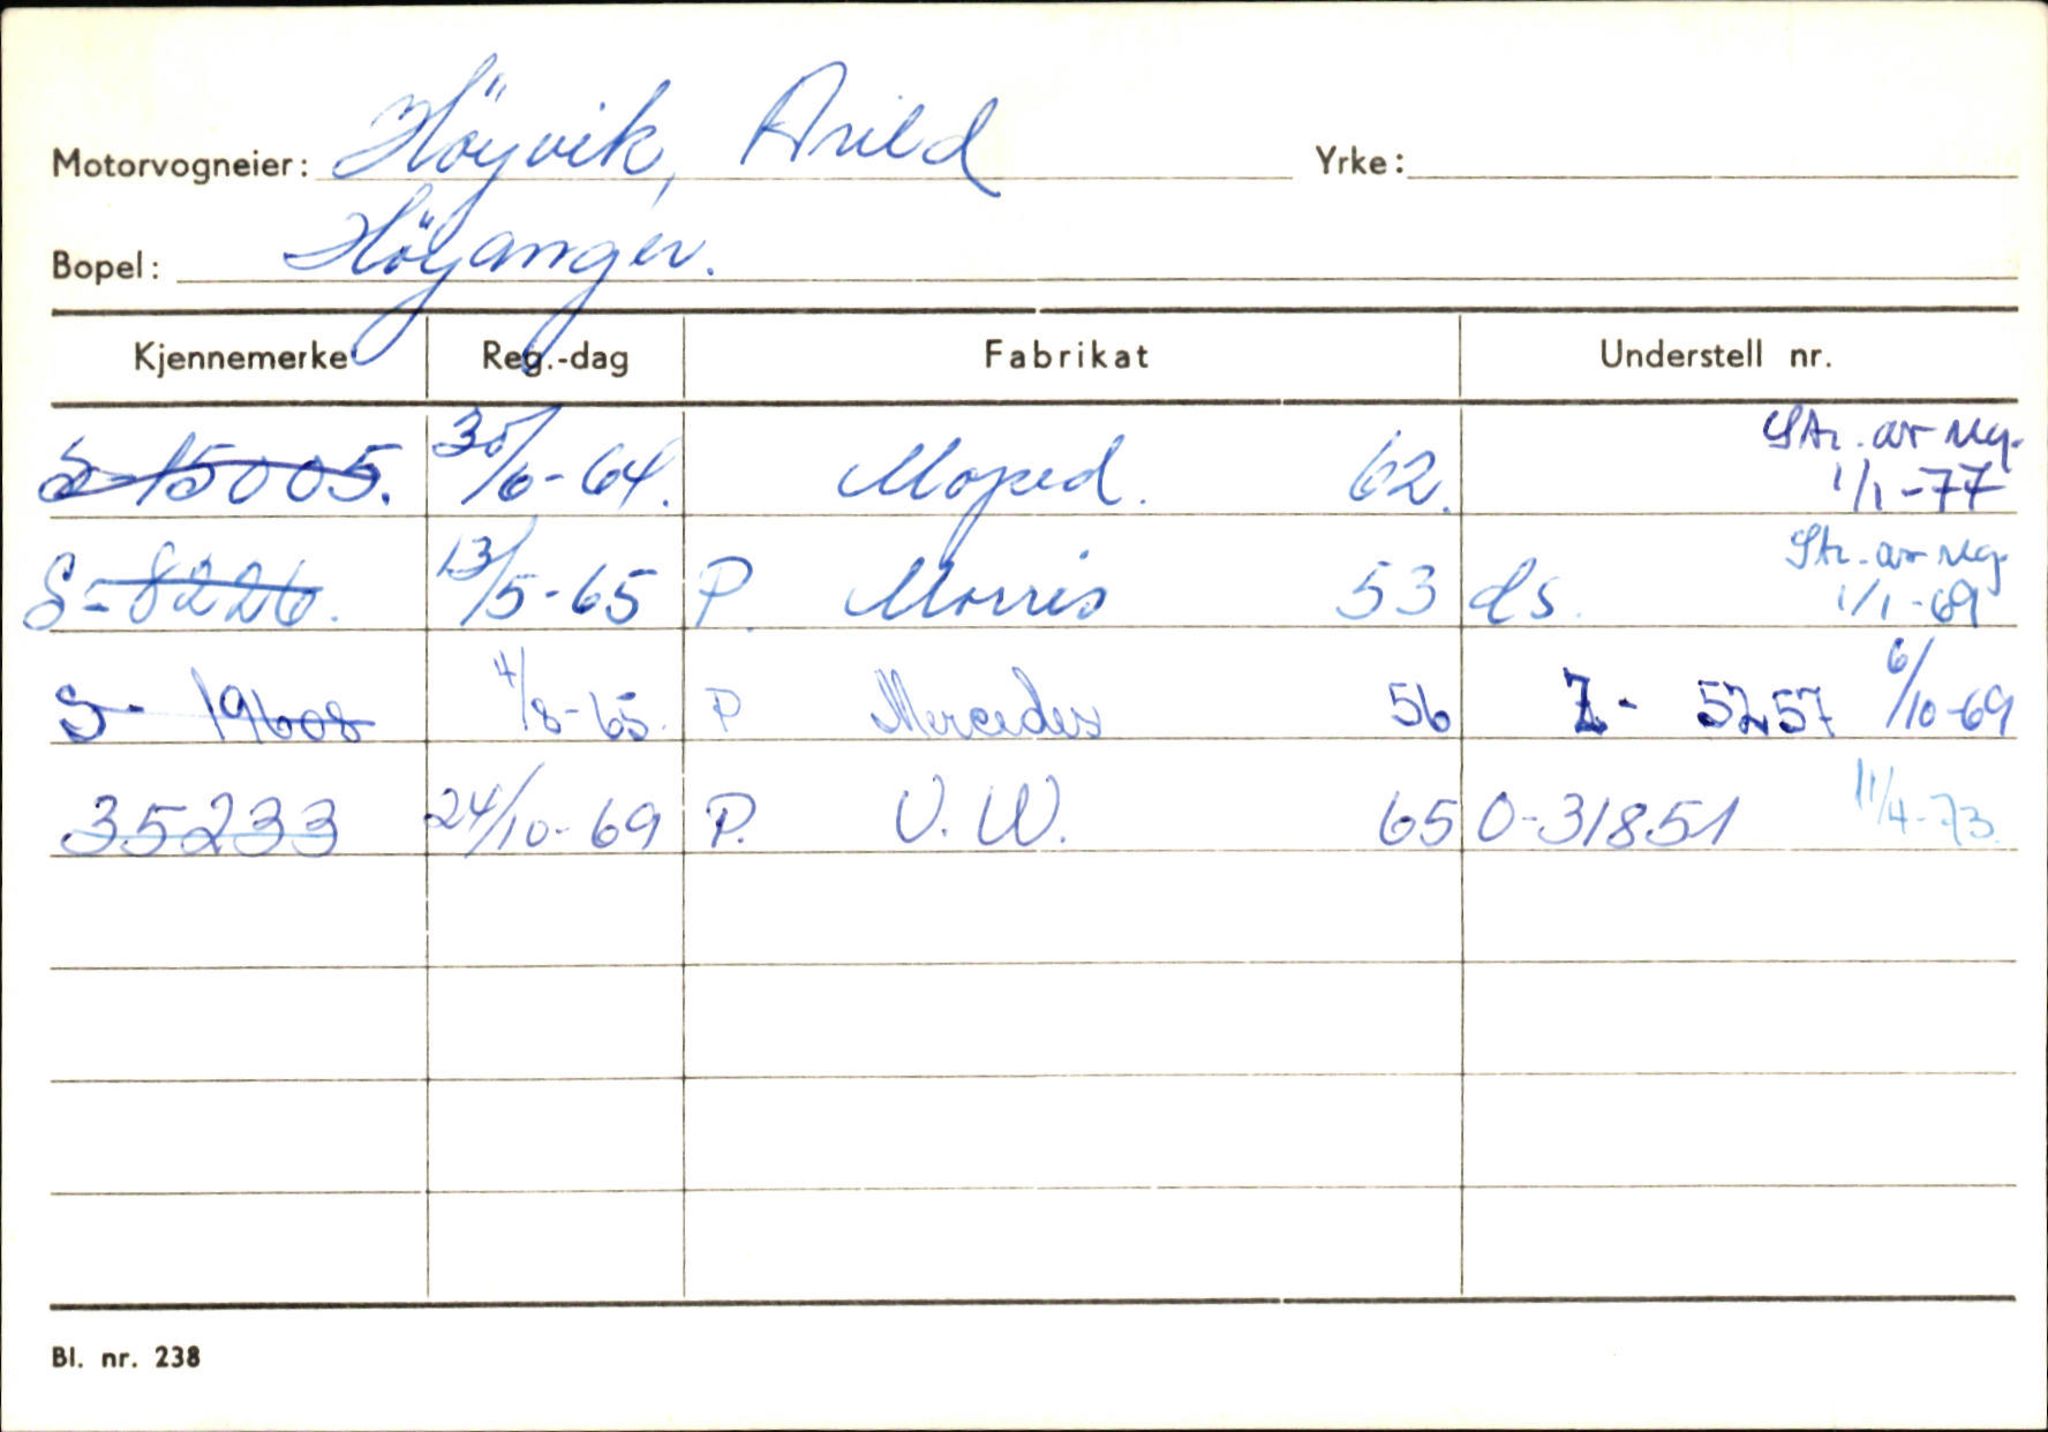 Motorvogneier: Höyvik, Arild Yrke:
Bopel: Höyanger.
Kjennemerke Reg.-dag Fabrikat Understell nr.
S-15005. 30/6-64. Moped. 62. Str. av reg. 1/1-77
S-8226. 13/5-65 P. Morris 53 ds. Str. av reg 1/1-69
S- 19608 4/8-65. P Mercedes 56 Z- 5257 6/10-69
35233 24/10-69 P. V.W. 65 O-31851 11/4-73.
Bl. nr. 238